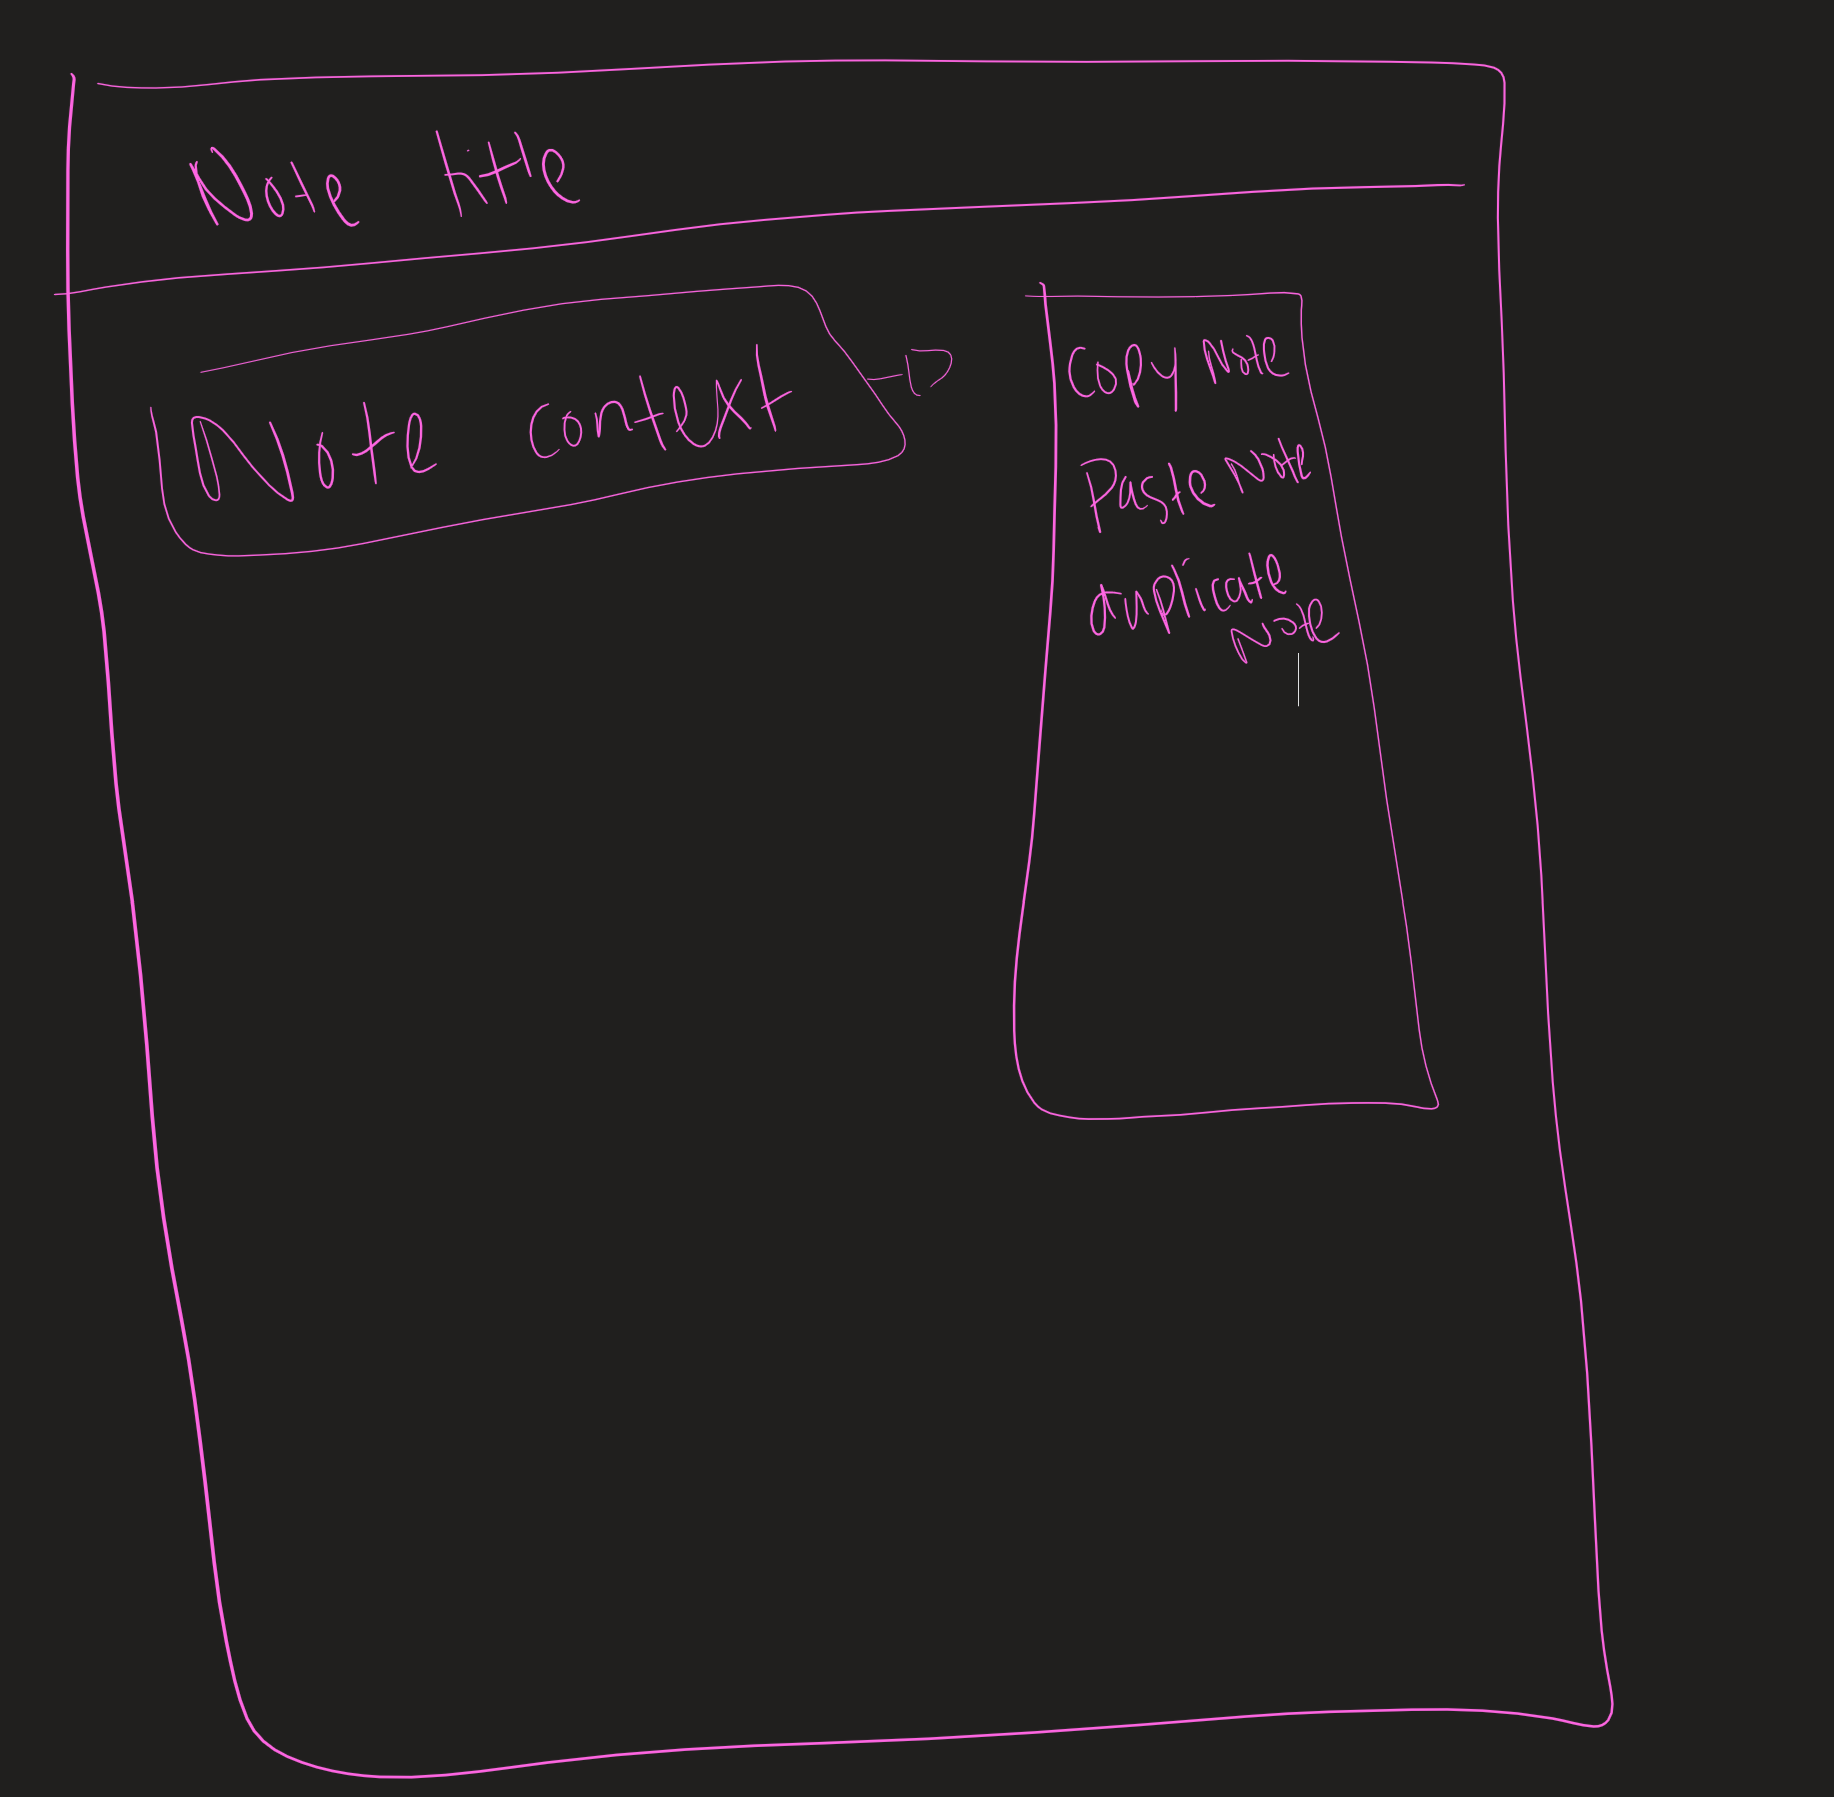 Note title
Note context
Copy Note
Paste Note
duplicate
Note